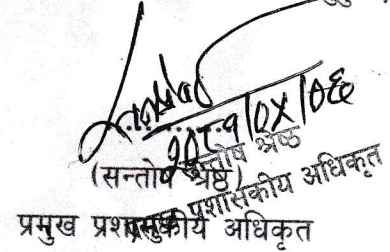 २०८१/०५/०६
(सन्तोष श्रेष्ठ)
सन्तोष श्रेष्ठ
प्रमुख प्रशासकीय अधिकृत
प्रमुख प्रशासकीय अधिकृत